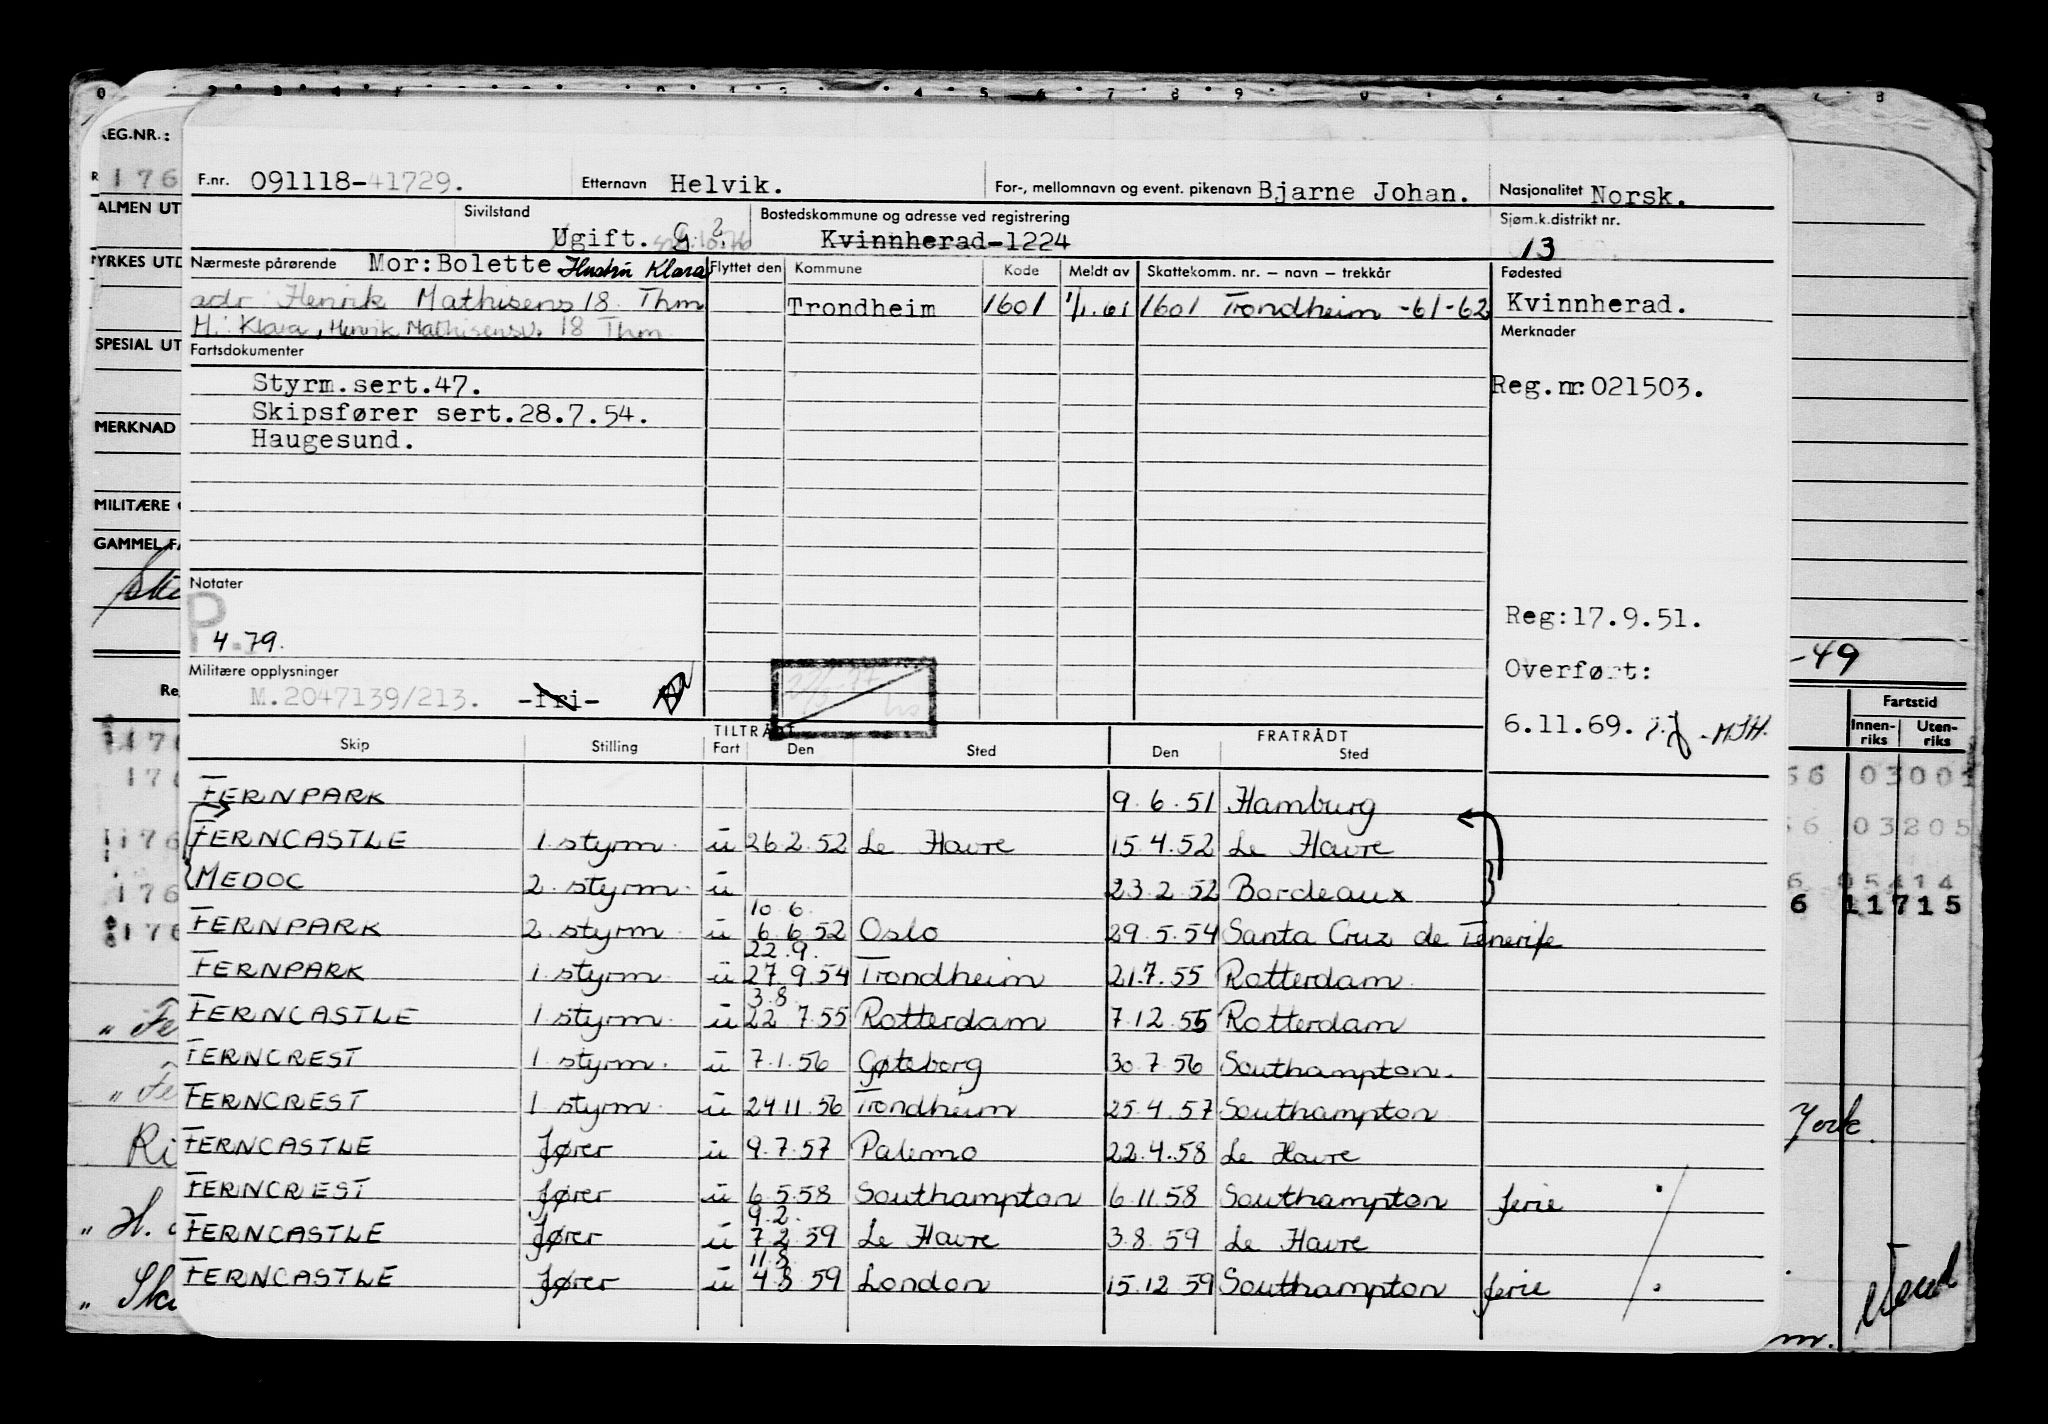 REG.NR.:
F.nr. 091118-41729. Etternavn Helvik. For-, mellomnavn og event. pikenavn Bjarne Johan. Nasjonalitet Norsk.
176
ALMEN UT
Sivilstand Bostedskommune og adresse ved registrering Sjøm.k.distrikt nr.
Ugift. G ?. Kvinnherad-1224 13
YRKES UTD
Nærmeste pårørende Mor: Bolette Hustru Klara Flyttet den Kommune Kode Meldt av Skattekomm. nr. – navn – trekkår Fødested
adr Henrik Mathisens 18 Thm Trondheim 1601 1/1.61 1601 Trondheim -61-62 Kvinnherad.
H: Klara, Henrik Mathisensv. 18 Thm Merknader
SPESIAL UT
Fartsdokumenter
Styrm.sert.47. Reg.nr:021503.
Skipsfører sert.28.7.54.
MERKNAD
Haugesund.
MILITÆRE
GAMMEL FA
Notater
P
4.79. Reg:17.9.51.
-49
Militære opplysninger Overført:
M.2047139/213. -Fri-
6.11.69.
Fartstid
Innenriks Utenriks
TILTRÅDT FRATRÅDT
Skip Stilling Fart Den Sted Den Sted
FERNPARK 9.6.51 Hamburg
FERNCASTLE 1 styrm. u 26.2.52 Le Havre 15.4.52 Le Havre
MEDOC 2. styrm. u 23.2.52 Bordeaux
10.6.
FERNPARK 2. styrm. u 6.6.52 Oslo 29.5.54 Santa Cruz de Tenerife
22.9.
FERNPARK 1. styrm. u 27.9.54 Trondheim 21.7.55 Rotterdam
3.8.
FERNCASTLE 1 styrm. u 22.7.55 Rotterdam 7.12.55 Rotterdam
FERNCREST 1. styrm. u 7.1.56 Gøteborg 30.7.56 Southampton.
FERNCREST 1 styrm. u 24.11.56 Trondheim 25.4.57 Southampton
FERNCASTLE fører u 9.7.57 Palermo 22.4.58 Le Havre
FERNCREST fører u 6.5.58 Southampton 6.11.58 Southampton ferie
9.2.
FERNCASTLE fører u 7.2.59 Le Havre 3.8.59 Le Havre
11.8.
FERNCASTLE fører u 4.8.59 London 15.12.59 Southampton ferie
03001
03205
05414
6 11715
York.